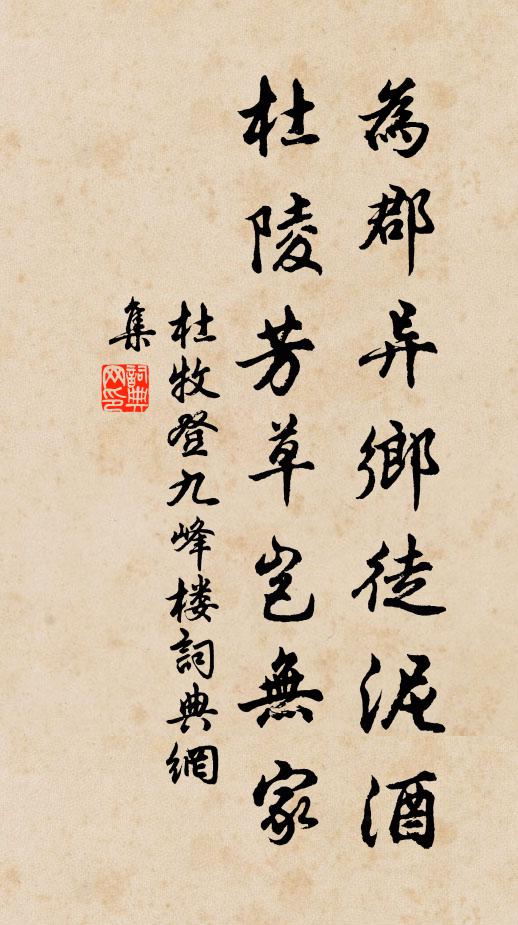 為郡异鄉徒泥酒
杜陵芳草岂無家
杜牧登九峰楼詞典網
集
詞典网印